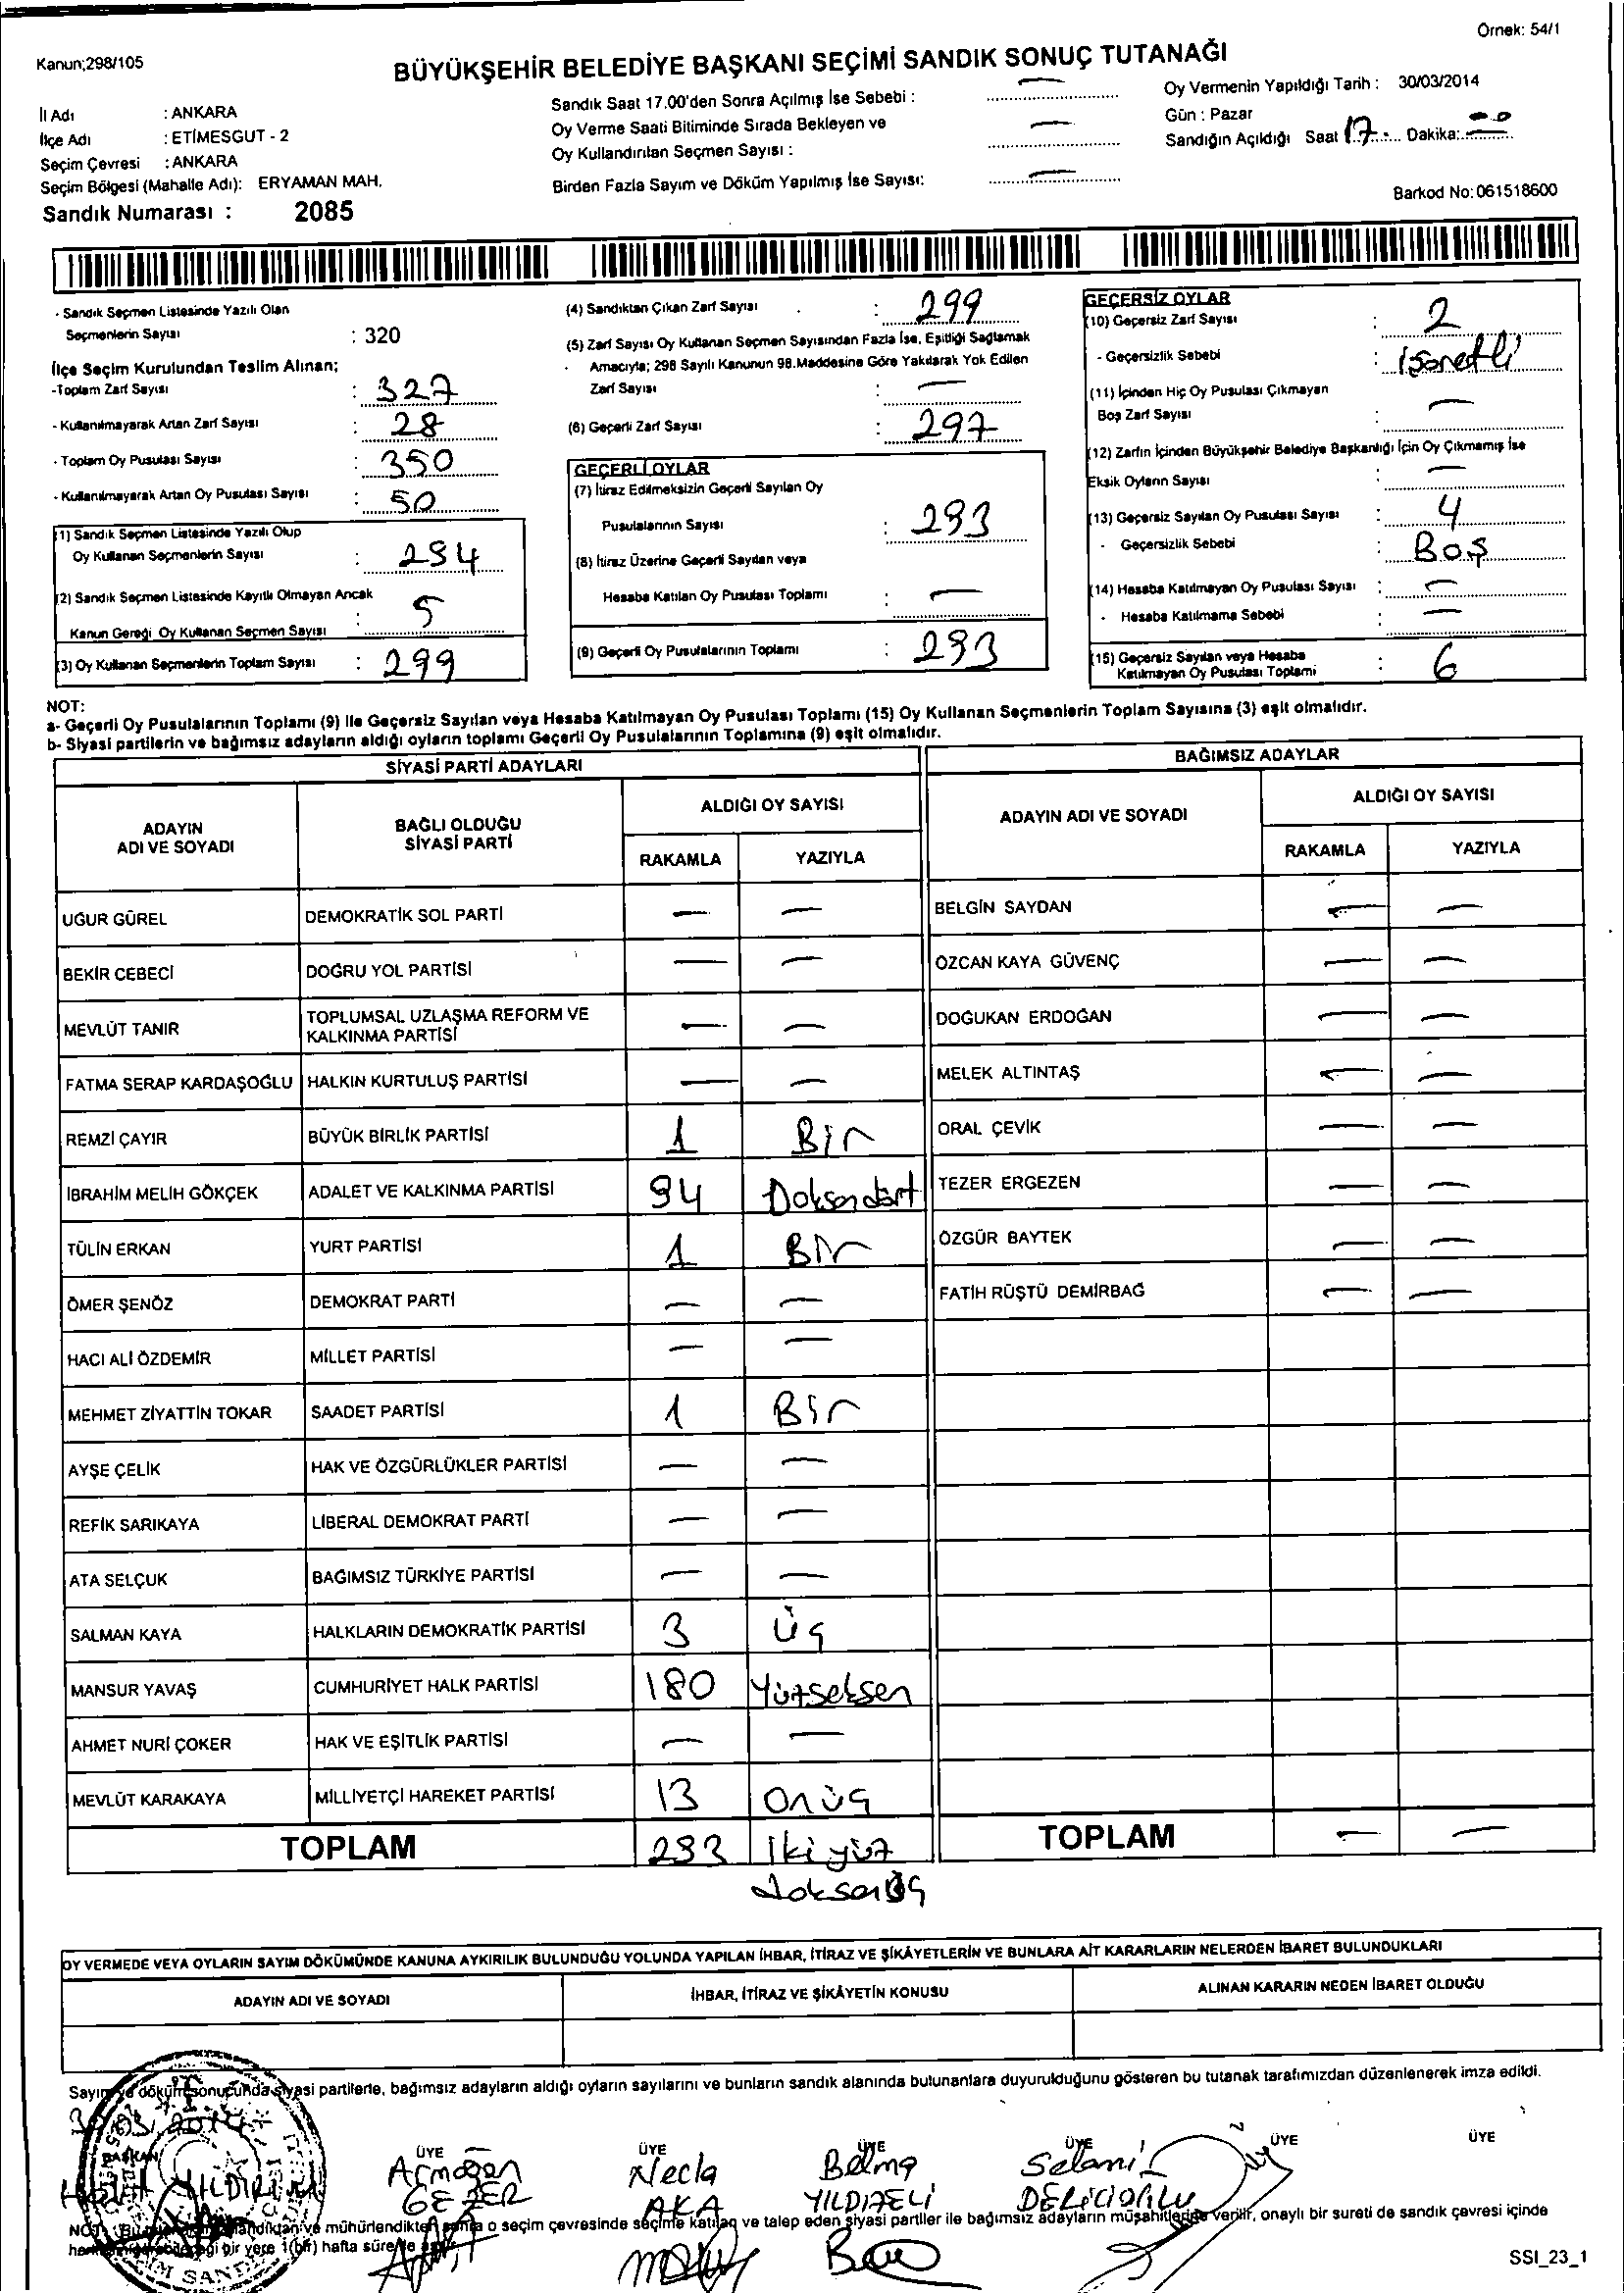 Örnek: 54/1
Kanun;298/105
BÜYÜKŞEHİR BELEDİYE BAŞKANI SEÇİMİ SANDIK SONUÇ TUTANAĞI
İl Adı : ANKARA
İlçe Adı : ETİMESGUT - 2
Seçim Çevresi : ANKARA
Seçim Bölgesi (Mahalle Adı): ERYAMAN MAH.
Sandık Numarası : 2085
Sandık Saat 17.00'den Sonra Açılmış İse Sebebi : —
Oy Verme Saati Bitiminde Sırada Bekleyen ve
Oy Kullandırılan Seçmen Sayısı : —
Birden Fazla Sayım ve Döküm Yapılmış İse Sayısı: —
Oy Vermenin Yapıldığı Tarih : 30/03/2014
Gün : Pazar
Sandığın Açıldığı Saat 17 Dakika:
Barkod No: 061518600
- Sandık Seçmen Listesinde Yazılı Olan
Seçmenlerin Sayısı : 320
İlçe Seçim Kurulundan Teslim Alınan;
-Toplam Zarf Sayısı : 327
- Kullanılmayarak Artan Zarf Sayısı : 28
- Toplam Oy Pusulası Sayısı : 350
- Kullanılmayarak Artan Oy Pusulası Sayısı : 50
(1) Sandık Seçmen Listesinde Yazılı Olup
Oy Kullanan Seçmenlerin Sayısı : 294
(2) Sandık Seçmen Listesinde Kayıtlı Olmayan Ancak
Kanun Gereği Oy Kullanan Seçmen Sayısı : 5
(3) Oy Kullanan Seçmenlerin Toplam Sayısı : 299
(4) Sandıktan Çıkan Zarf Sayısı : 299
(5) Zarf Sayısı Oy Kullanan Seçmen Sayısından Fazla İse, Eşitliği Sağlamak
Amacıyla; 298 Sayılı Kanunun 98.Maddesine Göre Yakılarak Yok Edilen
Zarf Sayısı : —
(6) Geçerli Zarf Sayısı : 297
GEÇERLİ OYLAR
(7) İtiraz Edilmeksizin Geçerli Sayılan Oy
Pusulalarının Sayısı : 293
(8) İtiraz Üzerine Geçerli Sayılan veya
Hesaba Katılan Oy Pusulası Toplamı : —
(9) Geçerli Oy Pusulalarının Toplamı : 293
GEÇERSİZ OYLAR
(10) Geçersiz Zarf Sayısı : 2
- Geçersizlik Sebebi : İşaretli
(11) İçinden Hiç Oy Pusulası Çıkmayan
Boş Zarf Sayısı : —
(12) Zarfın İçinden Büyükşehir Belediye Başkanlığı İçin Oy Çıkmamış İse
Eksik Oyların Sayısı : —
(13) Geçersiz Sayılan Oy Pusulası Sayısı : 4
- Geçersizlik Sebebi : Boş
(14) Hesaba Katılmayan Oy Pusulası Sayısı : —
- Hesaba Katılmama Sebebi : —
(15) Geçersiz Sayılan veya Hesaba
Katılmayan Oy Pusulası Toplamı : 6
NOT:
a- Geçerli Oy Pusulalarının Toplamı (9) ile Geçersiz Sayılan veya Hesaba Katılmayan Oy Pusulası Toplamı (15) Oy Kullanan Seçmenlerin Toplam Sayısına (3) eşit olmalıdır.
b- Siyasi partilerin ve bağımsız adayların aldığı oyların toplamı Geçerli Oy Pusulalarının Toplamına (9) eşit olmalıdır.
SİYASİ PARTİ ADAYLARI
ADAYIN ADI VE SOYADI BAĞLI OLDUĞU SİYASİ PARTİ ALDIĞI OY SAYISI
RAKAMLA YAZIYLA
UĞUR GÜREL DEMOKRATİK SOL PARTİ — —
BEKİR CEBECİ DOĞRU YOL PARTİSİ — —
MEVLÜT TANIR TOPLUMSAL UZLAŞMA REFORM VE KALKINMA PARTİSİ — —
FATMA SERAP KARDAŞOĞLU HALKIN KURTULUŞ PARTİSİ — —
REMZİ ÇAYIR BÜYÜK BİRLİK PARTİSİ 1 Bir
İBRAHİM MELİH GÖKÇEK ADALET VE KALKINMA PARTİSİ 94 Doksandört
TÜLİN ERKAN YURT PARTİSİ 1 Bir
ÖMER ŞENÖZ DEMOKRAT PARTİ — —
HACI ALİ ÖZDEMİR MİLLET PARTİSİ — —
MEHMET ZİYATTİN TOKAR SAADET PARTİSİ 1 Bir
AYŞE ÇELİK HAK VE ÖZGÜRLÜKLER PARTİSİ — —
REFİK SARIKAYA LİBERAL DEMOKRAT PARTİ — —
ATA SELÇUK BAĞIMSIZ TÜRKİYE PARTİSİ — —
SALMAN KAYA HALKLARIN DEMOKRATİK PARTİSİ 3 Üç
MANSUR YAVAŞ CUMHURİYET HALK PARTİSİ 180 Yüzseksen
AHMET NURİ ÇOKER HAK VE EŞİTLİK PARTİSİ — —
MEVLÜT KARAKAYA MİLLİYETÇİ HAREKET PARTİSİ 13 Onüç
TOPLAM 293 İkiyüz
doksanüç
BAĞIMSIZ ADAYLAR
ADAYIN ADI VE SOYADI ALDIĞI OY SAYISI
RAKAMLA YAZIYLA
BELGİN SAYDAN — —
ÖZCAN KAYA GÜVENÇ — —
DOĞUKAN ERDOĞAN — —
MELEK ALTINTAŞ — —
ORAL ÇEVİK — —
TEZER ERGEZEN — —
ÖZGÜR BAYTEK — —
FATİH RÜŞTÜ DEMİRBAĞ — —
TOPLAM — —
OY VERMEDE VEYA OYLARIN SAYIM DÖKÜMÜNDE KANUNA AYKIRILIK BULUNDUĞU YOLUNDA YAPILAN İHBAR, İTİRAZ VE ŞİKÂYETLERİN VE BUNLARA AİT KARARLARIN NELERDEN İBARET BULUNDUKLARI
ADAYIN ADI VE SOYADI İHBAR, İTİRAZ VE ŞİKÂYETİN KONUSU ALINAN KARARIN NEDEN İBARET OLDUĞU
Sayım ve döküm sonucunda siyasi partilerle, bağımsız adayların aldığı oyların sayılarını ve bunların sandık alanında bulunanlara duyurulduğunu gösteren bu tutanak tarafımızdan düzenlenerek imza edildi.
30.03.2014
BAŞKAN ÜYE ÜYE ÜYE ÜYE ÜYE ÜYE
YILDIRIM
Armağan Necla Belma Selami
GEZER AKA YILDIZELİ DELİCİOĞLU
mühürlendikten sonra o seçim çevresinde seçime katılan ve talep eden siyasi partiler ile bağımsız adayların müşahitlerine verilir, onaylı bir sureti de sandık çevresi içinde
bir yere 1(bir) hafta süreyle
SSI_23_1